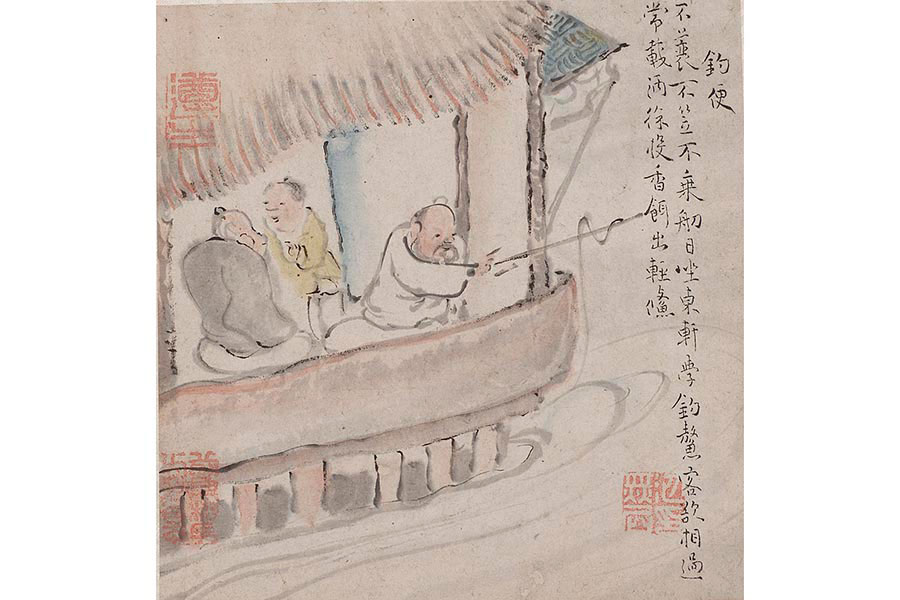 釣便
不蓑不笠不乗舠日坐東軒學釣鰲客欲相過
常載酒徐投香餌出輕鯈